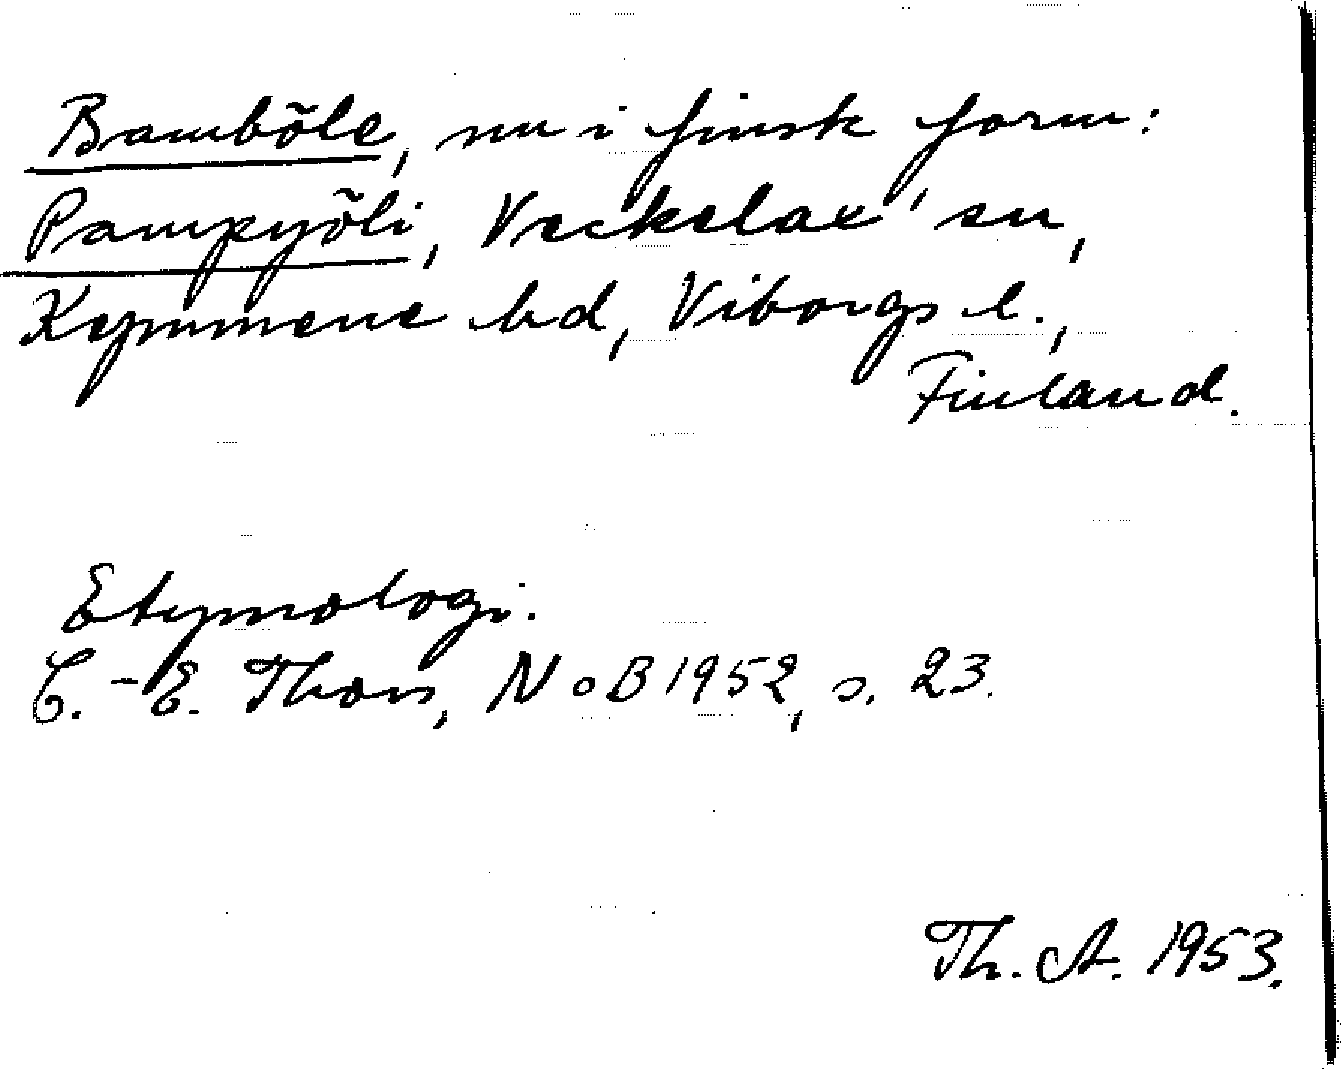 Bamböle, nu i finsk form:
Pampyöli, Veckelax' sn,
Kymmene hd, Viborgs l.,
Finland.
Etymologi.
C.-E. Thors, NoB 1952, s. 23.
Th. A. 1953.